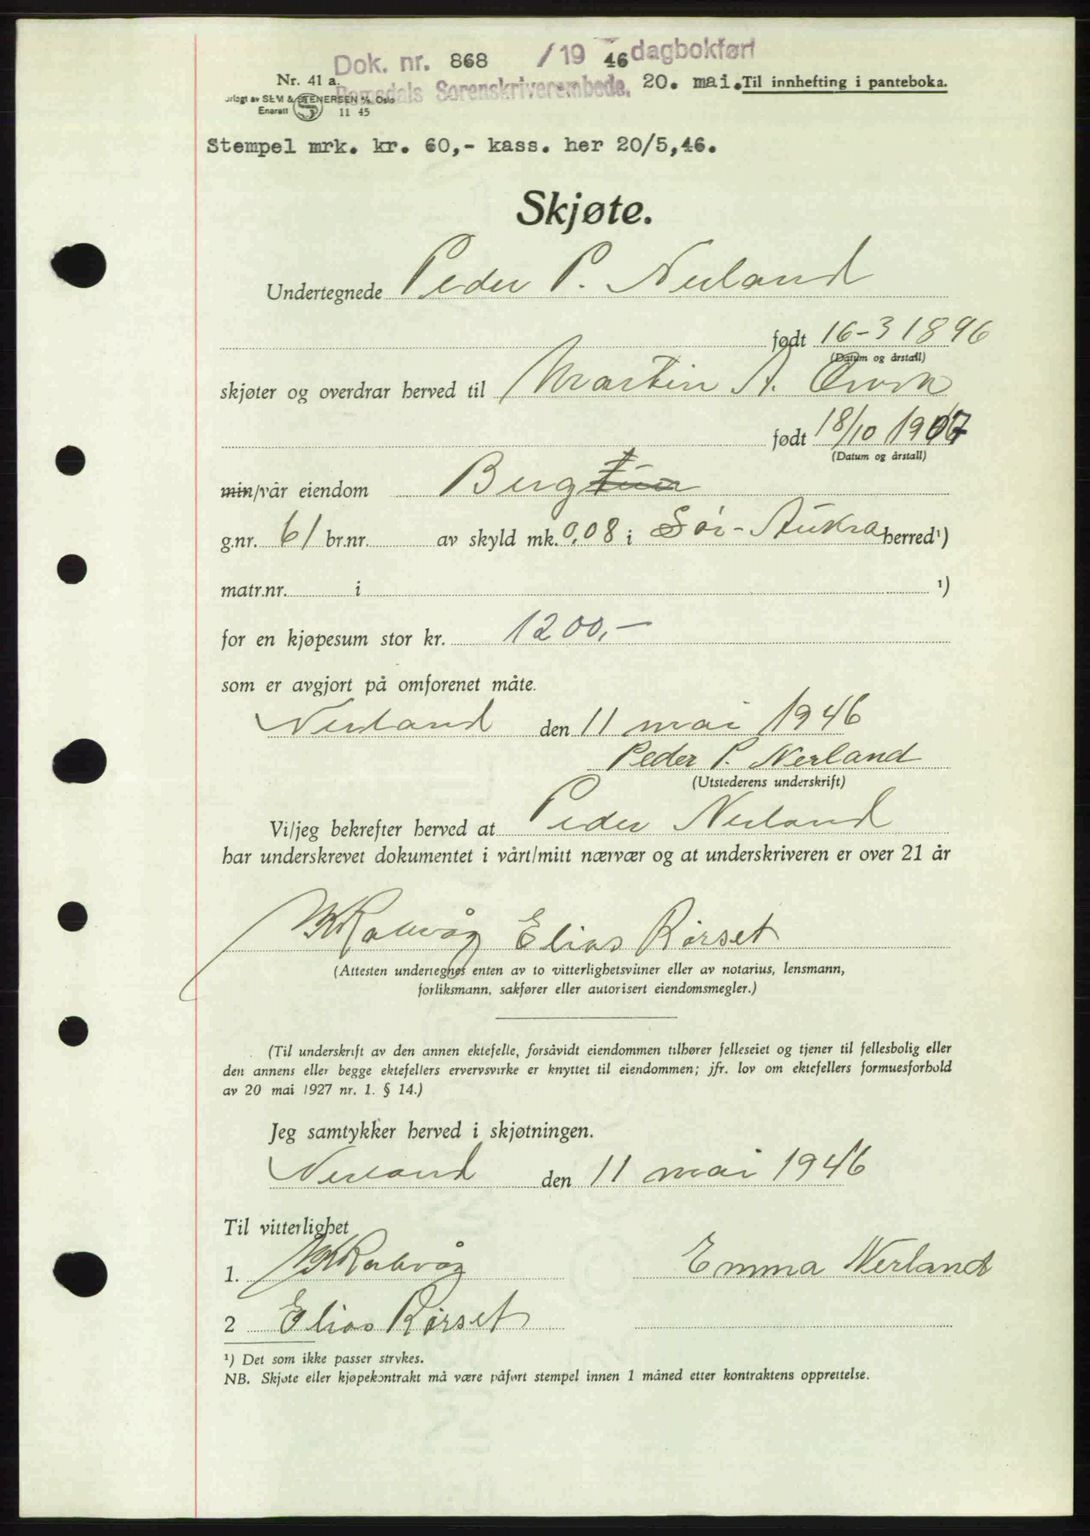 Dok. nr. 868 /19 46 dagbokført
Nr. 41 a. Romsdals Sorenskriverembede. 20. mai. Til innhefting i panteboka.
Forlagt av SEM & STENERSEN A/S, Oslo
Enerett S 11 45
Stempel mrk. kr. 60,- kass. her 20/5,46.
Skjøte.
Undertegnede Peder P. Nerland
født 16-3 1896
(Datum og årstall)
skjøter og overdrar herved til Martin A.
født 18/10 1907
(Datum og årstall)
min/vår eiendom Berg
g.nr. 61 br.nr. av skyld mk. 0,08 i Sør-Aukra herred¹)
matr.nr. i ¹)
for en kjøpesum stor kr. 1200,-
som er avgjort på omforenet måte.
Nerland den 11 mai 1946
Peder P. Nerland
(Utstederens underskrift)
Vi/jeg bekrefter herved at Peder Nerland
har underskrevet dokumentet i vårt/mitt nærvær og at underskriveren er over 21 år
Elias Rørset
(Attesten undertegnes enten av to vitterlighetsvitner eller av notarius, lensmann,
forliksmann, sakfører eller autorisert eiendomsmegler.)
(Til underskrift av den annen ektefelle, forsåvidt eiendommen tilhører felleseiet og tjener til fellesbolig eller
den annens eller begge ektefellers ervervsvirke er knyttet til eiendommen; jfr. lov om ektefellers formuesforhold
av 20 mai 1927 nr. 1. § 14.)
Jeg samtykker herved i skjøtningen.
Nerland den 11 mai 1946
Til vitterlighet
1. Emma Nerland
2 Elias Rørset
¹) Det som ikke passer strykes.
NB. Skjøte eller kjøpekontrakt må være påført stempel innen 1 måned etter kontraktens opprettelse.